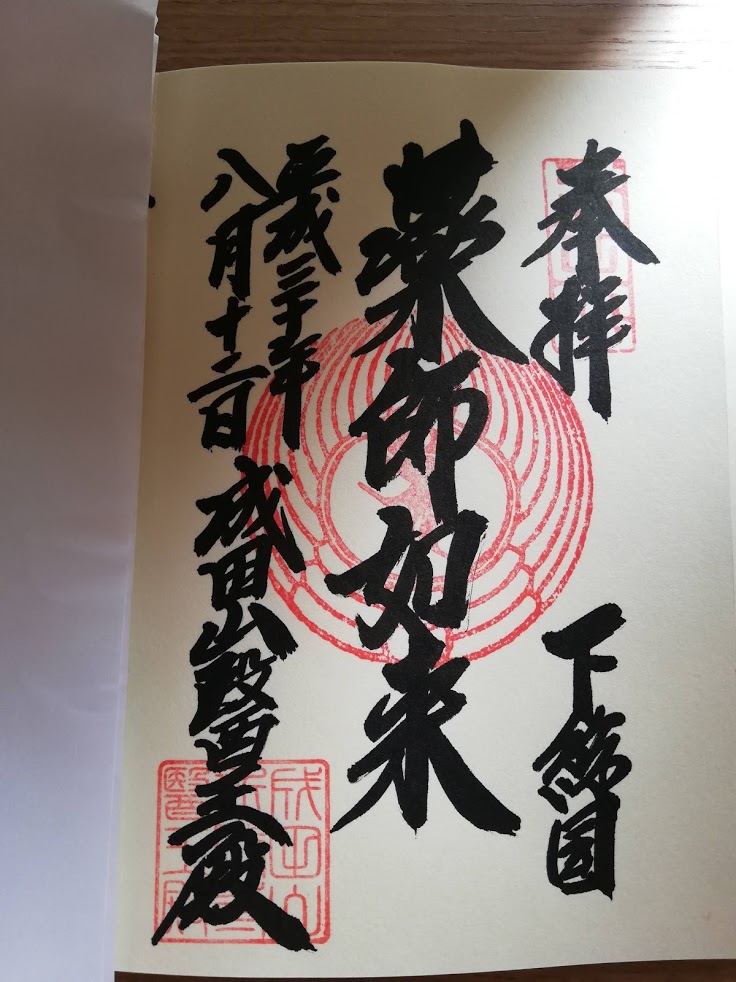 奉拝
下總国
薬師如来
平成三十年
八月十二日
成田山醫王殿
成田山
醫王殿